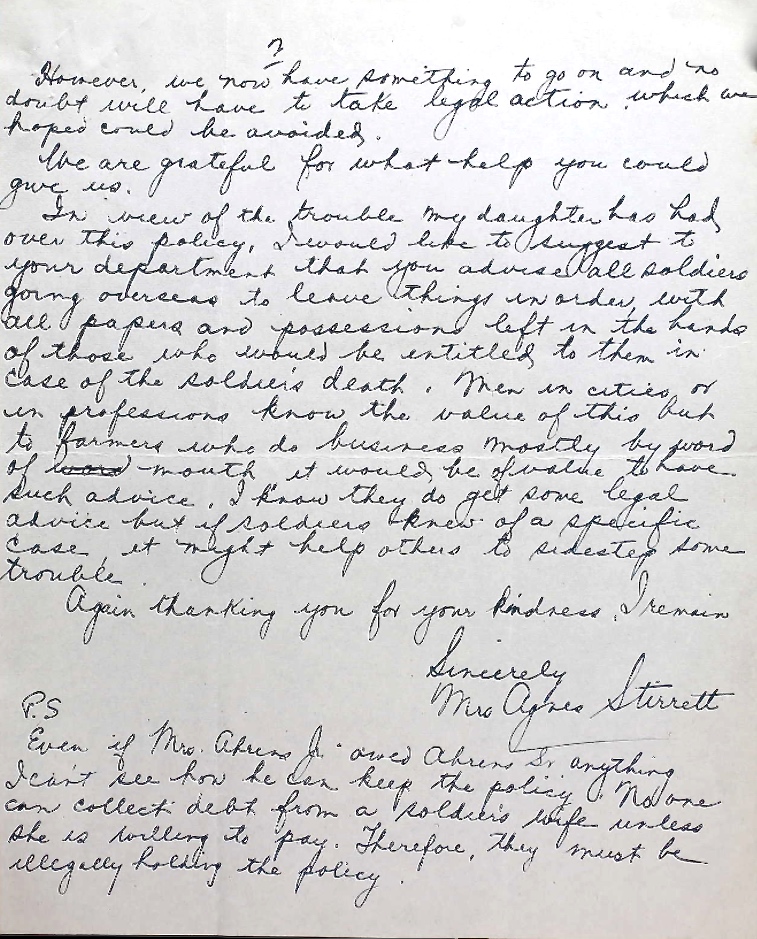 2
However, we now have something to go on and no
doubt will have to take legal action, which we
hoped could be avoided.
We are grateful for what help you could
give us.
In view of the trouble my daughter has had
over this policy, I would like to suggest to
your department that you advise all soldiers
going overseas to leave things in order, with
all papers and possessions left in the hands
of those who would be entitled to them in
case of the soldier's death. Men in cities, or
in professions know the value of this but
to farmers who do business mostly by word
of word mouth it would be of value to have
such advice. I know they do get some legal
advice but if soldiers knew of a specific
case, it might help others to sidestep some
trouble.
Again thanking you for your kindness, I remain
Sincerely
Mrs Agnes Stirrett
P.S
Even if Mrs. Ahrens Jr. owed Ahrens Sr anything
I can't see how he can keep the policy. No one
can collect debt from a soldier's wife unless
she is willing to pay. Therefore, they must be
illegally holding the policy.